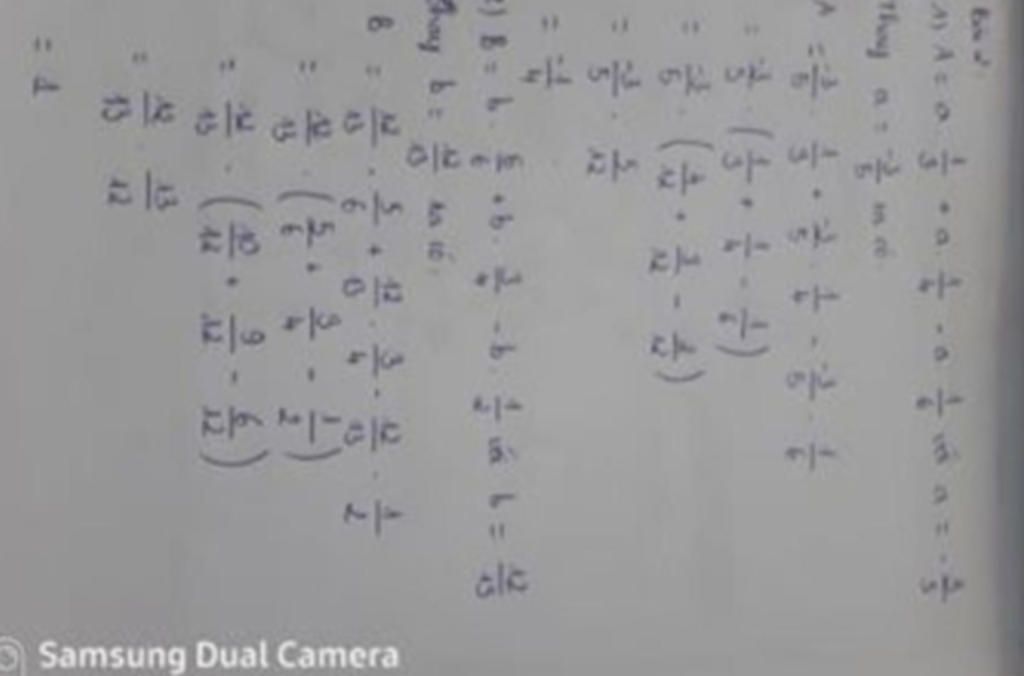 Bài 2:
1) A = a . 1/3 + a . 1/4 - a . 1/6 với a = -3/5
Thay a = -3/5 ta có:
A = -3/5 . 1/3 + -3/5 . 1/4 - -3/5 . 1/6
= -3/5 . (1/3 + 1/4 - 1/6)
= -3/5 . (4/12 + 3/12 - 2/12)
= -3/5 . 5/12
= -1/4
) B = b . 5/6 + b . 3/4 - b . 1/2 với b = 12/13
Thay b = 12/13 ta có:
B = 12/13 . 5/6 + 12/13 . 3/4 - 12/13 . 1/2
= 12/13 . (5/6 + 3/4 - 1/2)
= 12/13 . (10/12 + 9/12 - 6/12)
= 12/13 . 13/12
= 1
Samsung Dual Camera